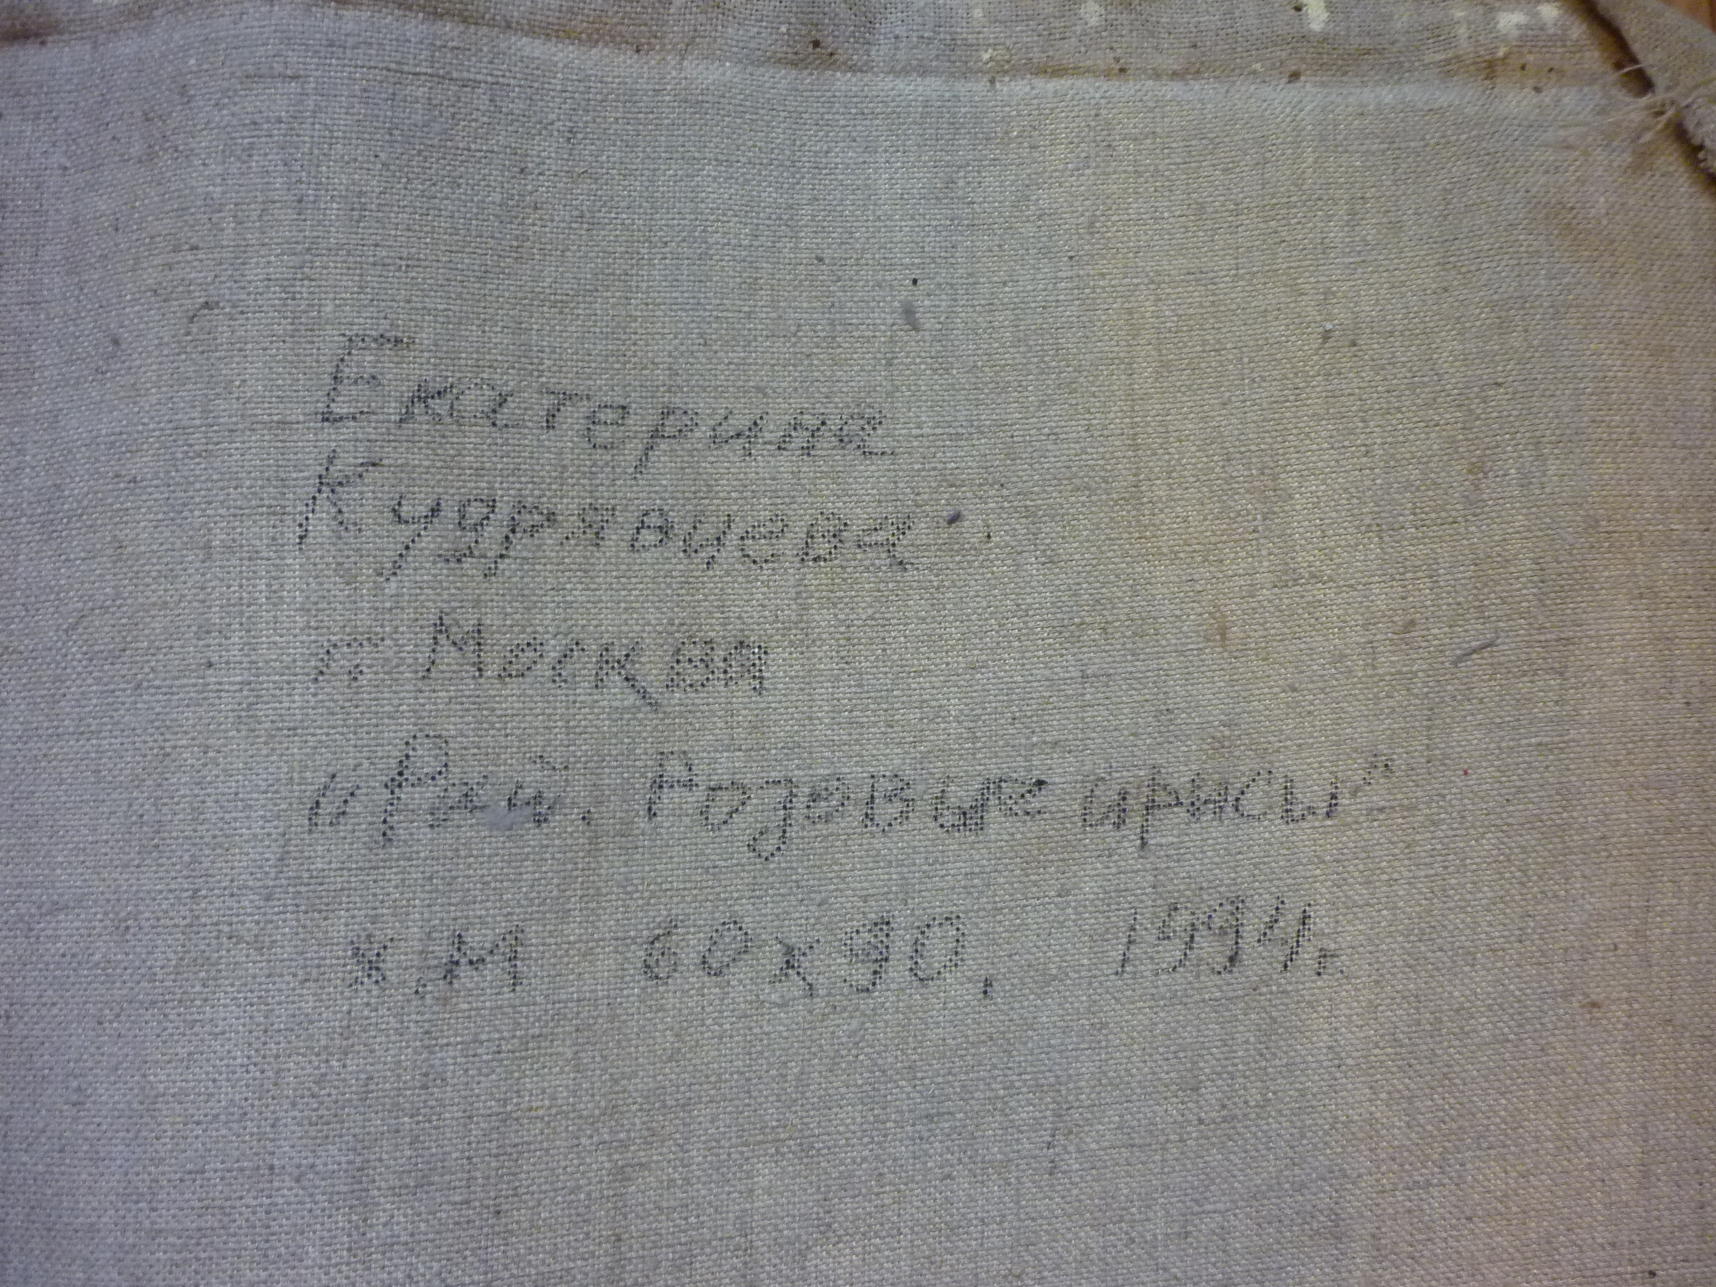 Екатерина
Кудрявцева
г. Москва
"Рай. Розовые ирисы"
х.м 60x90. 1994г.